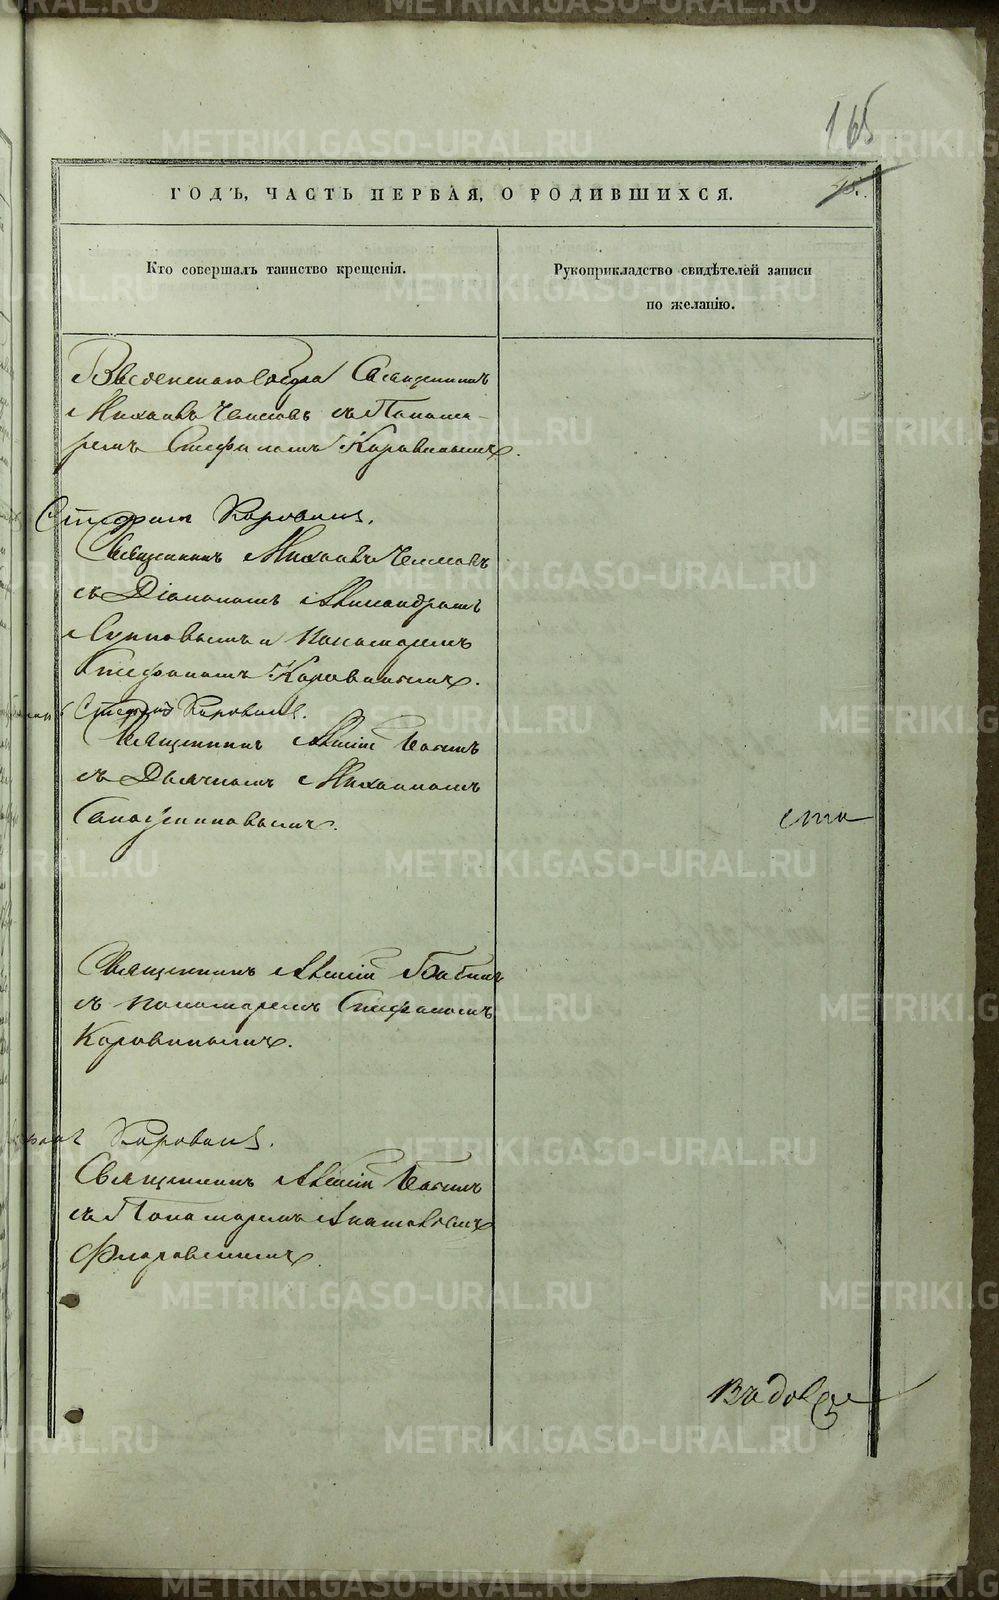 165
75.
ГОДЪ, ЧАСТЬ ПЕРВАЯ, О РОДИВШИХСЯ.
Кто совершалъ таинство крещенія.
Рукоприкладство свидѣтелей записи
по желанію.
Введенскаго Собора Священникъ
Михаилъ съ Понома-
ремъ Стефаномъ Коровинымъ.
Стефанъ Коровинъ.
Священникъ Михаилъ
съ Діакономъ Александромъ
и Пономаремъ
Стефаномъ Коровинымъ.
Стефанъ Коровинъ.
Священникъ Алексій Бабинъ
съ Дьячкомъ Михаиломъ
сти
Священникъ Алексій Бабинъ
съ Пономаремъ Стефаномъ
Коровинымъ.
Коровинъ.
Священникъ Алексій Бабинъ
съ Пономаремъ
Флоровскимъ.
METRIKI.GASO-URAL.RU